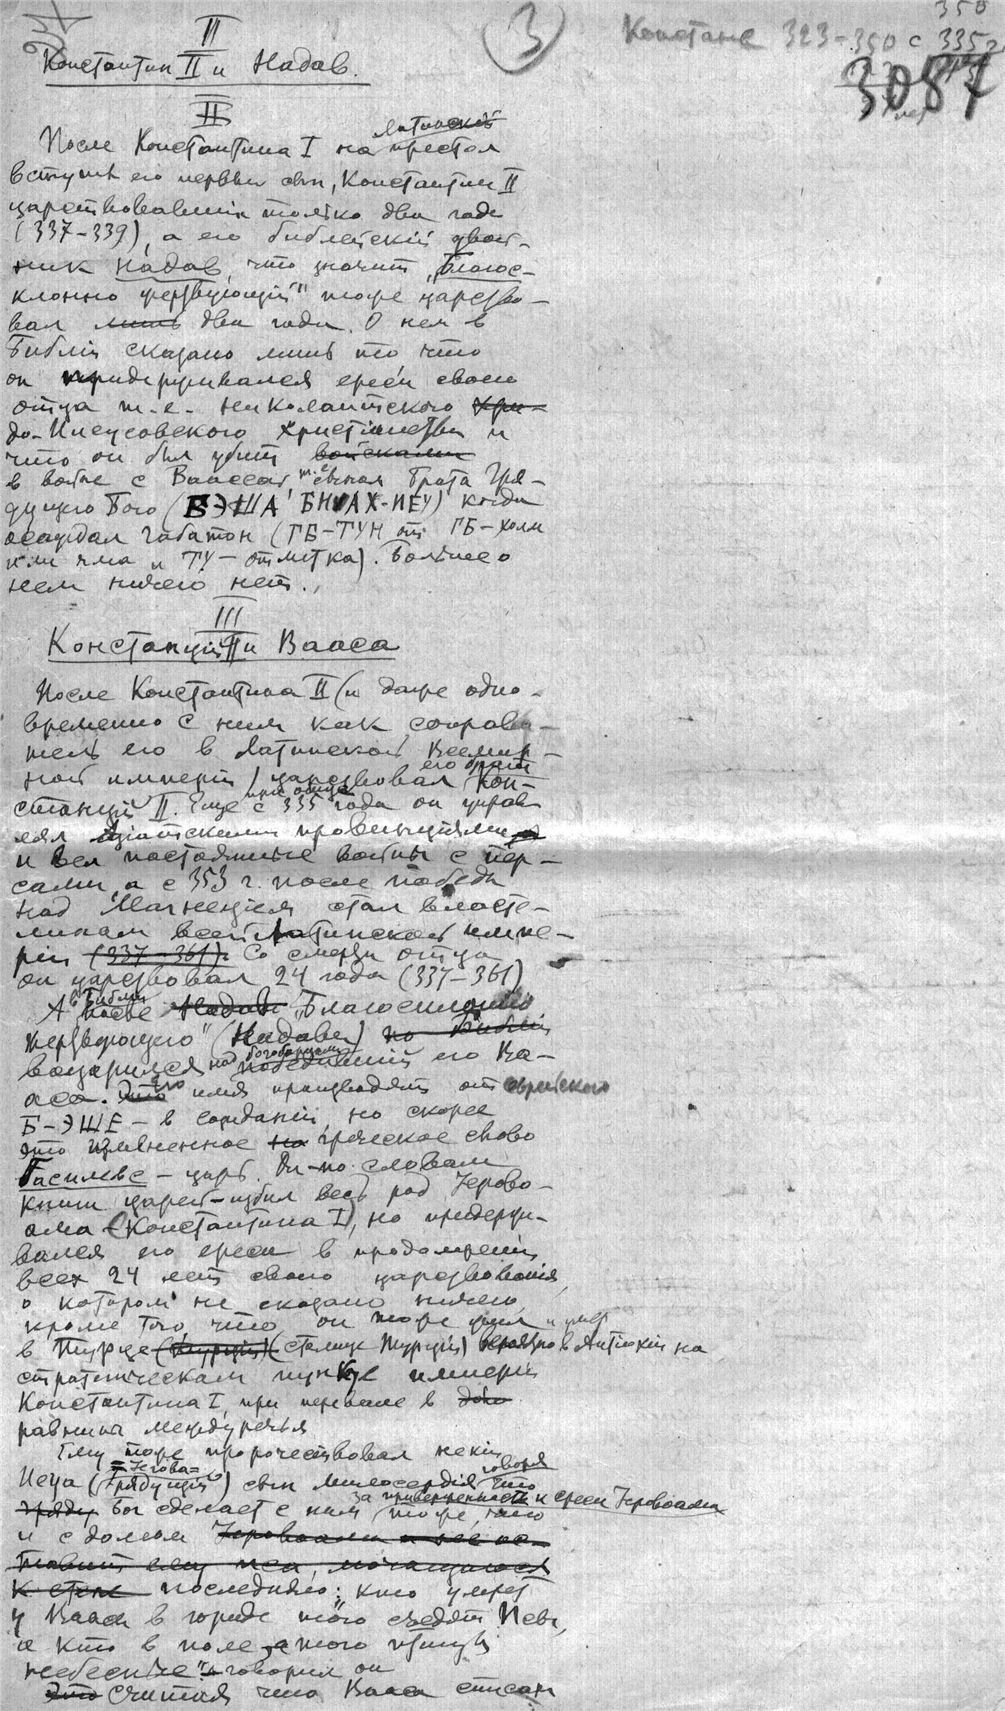 3
350
Констанс 323-350 с 335
3087
II
Константин II и Надав.
II
После Константина I на латинский престол
вступил его первый сын, Константин II
царствовавший только два года
(337-339), а его библейский двой-
ник Надав, что значит „Благос-
клонно жертвующий" тоже царство-
вал лишь два года. О нем в
Библии сказано лишь то что
он придерживался ереси своего
отца т.е. николаитского Хри-
до-Иисусовского христианства и
что он был убит войсками
в войне с Ваасой, т.е. сыном Брата Гря-
дущего Бога (БЭША БН АХ-ИЕУ) когда
осаждал Габатон (ГБ-ТУН от ГБ-холм
или яма и ТУ-отметка). Больше о
нем ничего нет.
III
Констанций II и Вааса
После Константина II (и даже одно-
временно с ним как соправи-
тель его в Латинской Всемир-
ной империи) царствовал его брат Кон-
станций II. Еще при отце с 335 года он управ
лял Азиатскими провинциями
и вел постоянные войны с пер-
сами, а с 353 г. после победы
над Магненцием стал власте-
лином всей Латинской импе-
рии (337-361). Со смерти отца
он царствовал 24 года (337-361)
А в Библии после Надав „Благосклонно
жертвующего" (Надава) по Библии
воцарился над богоборцами победивший его Ва-
аса. Это его имя производят от еврейского
Б-ЭШЕ - в созданий, но скорее
это измененное на греческое слово
Басилевс - царь. Он-по словам
книги царей-избил весь род Иерово-
ама (Константина I), но придержи-
вался его ереси в продолжении
всех 24 лет своего царствования,
о котором не сказано ничего,
кроме того, что он тоже жил и умер
в Тирце (Турции) (столице Турции) вероятно в Антиохии на
стратегическом пункте империи
Константина I, при перевале в
равнины междуречья
Ему тоже пророчествовал некий
Иеуа (=Иегова= Грядущий) сын милосердия говоря что
Бог сделает с ним за приверженность к ереси Иеровоама тоже, что
и с домом Иеровоама и не ос-
тавит ему пса, мочащегося
к стене последнего: „кто умрет
у Ваасы в городе того съедят псы,
а кто в поле, того птицы
небесные" - говорил он
Это Считая что Вааса списан